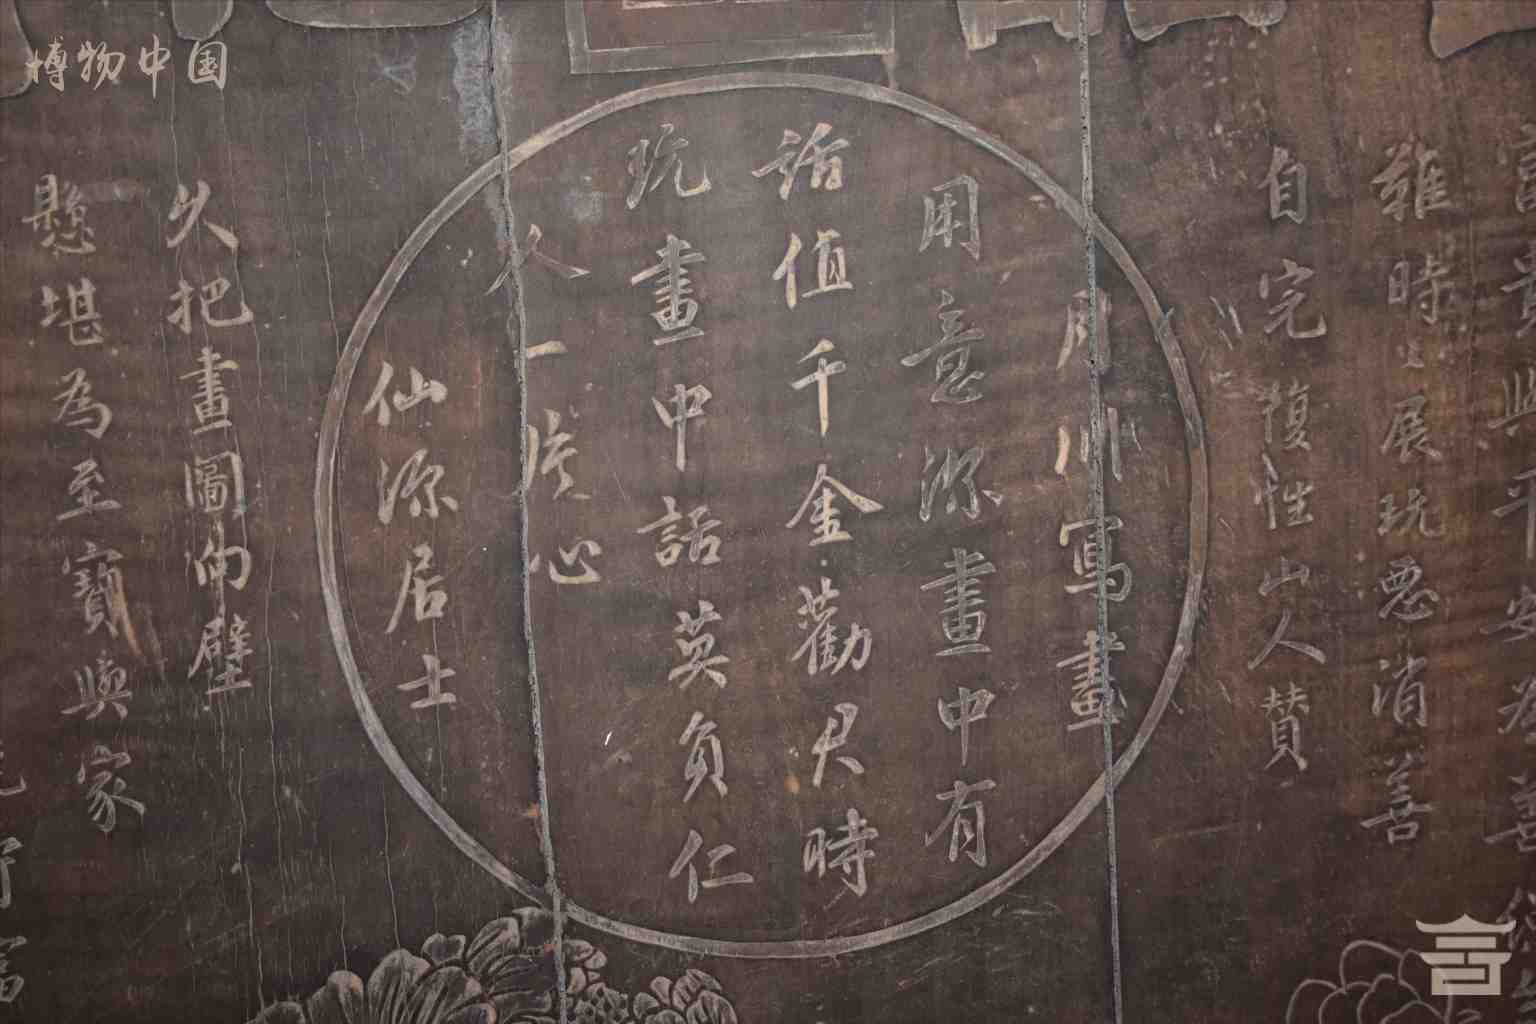 博物中国
富貴與平安為善
雖時々展玩惡消善
自完復性山人贊
月川寫畫
用意深畫中有
話值千金勸君時
玩畫中話莫負仁
人一片心
仙源居士
久把畫圖向壁
懸堪為至寶與家